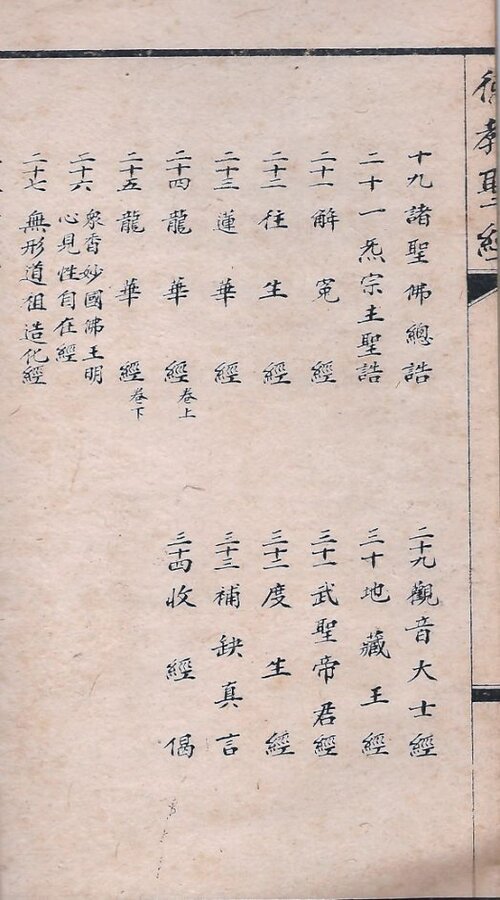 德教聖經
十九諸聖佛總誥
二十一炁宗主聖誥
二十一解冤經
二十二往生經
二十三蓮華經
二十四龍華經卷上
二十五龍華經卷下
二十六眾香妙國佛王明
心見性自在經
二十七無形道祖造化經
二十九觀音大士經
三十地藏王經
三十一武聖帝君經
三十二度生經
三十三補缺真言
三十四收經偈